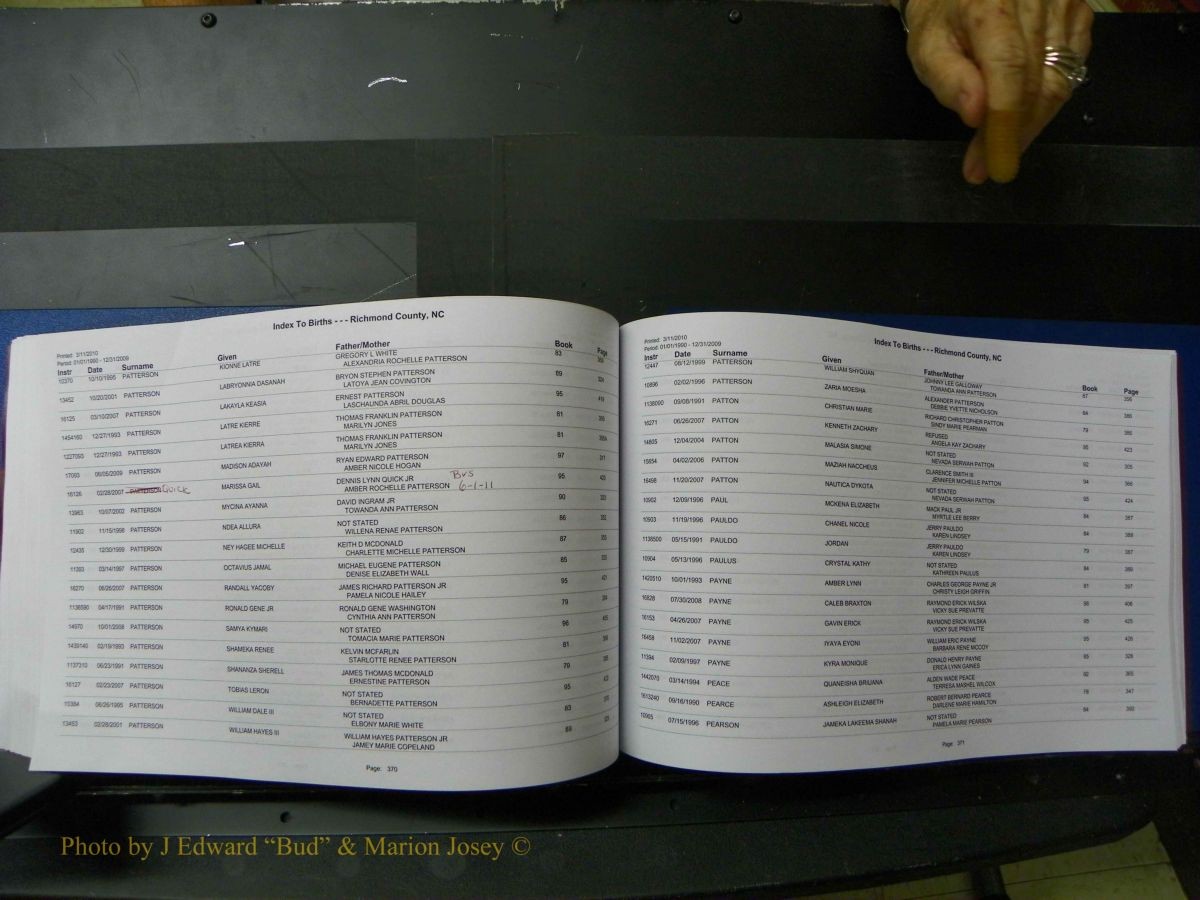 Index To Births - - - Richmond County, NC
Printed: 3/11/2010
Period: 01/01/1990 - 12/31/2009
Instr Date Surname Given Father/Mother Book Page
10370 10/10/1995 PATTERSON KIONNE LATRE GREGORY L WHITE 83
ALEXANDRIA ROCHELLE PATTERSON
13452 10/20/2001 PATTERSON LABRYONNA DASANAH BRYON STEPHEN PATTERSON 89
LATOYA JEAN COVINGTON
16125 03/10/2007 PATTERSON LAKAYLA KEASIA ERNEST PATTERSON 95
LASCHAUNDA ABRIL DOUGLAS
1454160 12/27/1993 PATTERSON LATRE KIERRE THOMAS FRANKLIN PATTERSON 81
MARILYN JONES
1227093 12/27/1993 PATTERSON LATREA KIERRA THOMAS FRANKLIN PATTERSON 81
MARILYN JONES
17093 06/05/2009 PATTERSON MADISON ADAYAH RYAN EDWARD PATTERSON 97
AMBER NICOLE HOGAN
16126 02/28/2007 PATTERSON Quick MARISSA GAIL DENNIS LYNN QUICK JR BVS 95
AMBER ROCHELLE PATTERSON 6-1-11
13963 10/07/2002 PATTERSON MYCINA AYANNA DAVID INGRAM JR 90
TOWANDA ANN PATTERSON
11902 11/15/1998 PATTERSON NDEA ALLURA NOT STATED 86
WILLENA RENAE PATTERSON
12435 12/30/1999 PATTERSON NEY HAGEE MICHELLE KEITH D MCDONALD 87
CHARLETTE MICHELLE PATTERSON
11393 03/14/1997 PATTERSON OCTAVIUS JAMAL MICHAEL EUGENE PATTERSON 85
DENISE ELIZABETH WALL
16270 06/26/2007 PATTERSON RANDALL YACOBY JAMES RICHARD PATTERSON JR 95
PAMELA NICOLE HAILEY
1136590 04/17/1991 PATTERSON RONALD GENE JR RONALD GENE WASHINGTON 79
CYNTHIA ANN PATTERSON
14970 10/01/2008 PATTERSON SAMYA KYMARI NOT STATED 96
TOMACIA MARIE PATTERSON
1439140 02/19/1993 PATTERSON SHAMEKA RENEE KELVIN MCFARLIN 81
STARLOTTE RENEE PATTERSON
1137310 06/23/1991 PATTERSON SHANANZA SHERELL JAMES THOMAS MCDONALD 79
ERNESTINE PATTERSON
16127 02/23/2007 PATTERSON TOBIAS LERON NOT STATED 95
BERNADETTE PATTERSON
10384 06/26/1995 PATTERSON WILLIAM DALE III NOT STATED 83
ELBONY MARIE WHITE
13453 02/28/2001 PATTERSON WILLIAM HAYES III WILLIAM HAYES PATTERSON JR 89
JAMEY MARIE COPELAND
Page: 370
Index To Births - - - Richmond County, NC
Printed: 3/11/2010
Period: 01/01/1990 - 12/31/2009
Instr Date Surname Given Father/Mother Book Page
12447 08/12/1999 PATTERSON WILLIAM SHYQUAN JOHNNY LEE GALLOWAY 87 356
TOWANDA ANN PATTERSON
10896 02/02/1996 PATTERSON ZARIA MOESHA ALEXANDER PATTERSON 84 386
DEBBIE YVETTE NICHOLSON
1138090 09/08/1991 PATTON CHRISTIAN MARIE RICHARD CHRISTOPHER PATTON 79 385
SINDY MARIE PEARMAN
16271 06/26/2007 PATTON KENNETH ZACHARY REFUSED 95 423
ANGELA KAY ZACHARY
14805 12/04/2004 PATTON MALASIA SIMONE NOT STATED 92 305
NEVADA SERWAH PATTON
15654 04/02/2006 PATTON MAZIAH NACCHEUS CLARENCE SMITH III 94 366
JENNIFER MICHELLE PATTON
16498 11/20/2007 PATTON NAUTICA DYKOTA NOT STATED 95 424
NEVADA SERWAH PATTON
10902 12/09/1996 PAUL MCKENA ELIZABETH MACK PAUL JR 84 387
MYRTLE LEE BERRY
10903 11/19/1996 PAULDO CHANEL NICOLE JERRY PAULDO 84 388
KAREN LINDSEY
1138500 05/15/1991 PAULDO JORDAN JERRY PAULDO 79 387
KAREN LINDSEY
10904 05/13/1996 PAULUS CRYSTAL KATHY NOT STATED 84 389
KATHREEN PAULUS
1420510 10/01/1993 PAYNE AMBER LYNN CHARLES GEORGE PAYNE JR 81 397
CHRISTY LEIGH GRIFFIN
16828 07/30/2008 PAYNE CALEB BRAXTON RAYMOND ERICK WILSKA 96 406
VICKY SUE PREVATTE
16153 04/26/2007 PAYNE GAVIN ERICK RAYMOND ERICK WILSKA 95 425
VICKY SUE PREVATTE
16458 11/02/2007 PAYNE IYAYA EYONI WILLIAM ERIC PAYNE 95 426
BARBARA RENE MCCOY
11394 02/09/1997 PAYNE KYRA MONIQUE DONALD HENRY PAYNE 85 326
ERICA LYNN GAINES
1442070 03/14/1994 PEACE QUANEISHA BRILIANA ALDEN WADE PEACE 82 365
TERRESA MASHEL WILCOX
1613240 09/16/1990 PEARCE ASHLEIGH ELIZABETH ROBERT BERNARD PEARCE 78 347
DARLENE MARIE HAMILTON
10905 07/15/1996 PEARSON JAMEKA LAKEEMA SHANAH NOT STATED 84 390
PAMELA MARIE PEARSON
Page: 371
Photo by J Edward “Bud” & Marion Josey ©